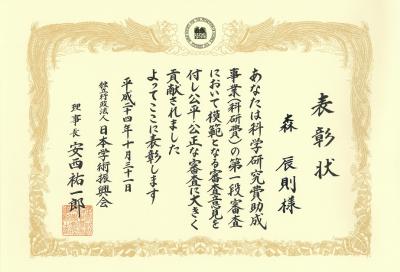 表彰状
森 辰則様
あなたは科学研究費助成
事業(科研費)の第一段審査
において模範となる審査意見を
付し公平・公正な審査に大きく
貢献されました
よってここに表彰します
平成二十四年十月三十一日
独立行政法人 日本学術振興会
理事長 安西祐一郎